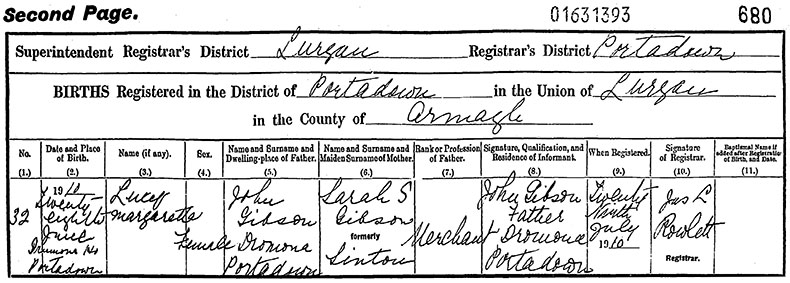 Second Page. 01631393 680
Superintendent Registrar's District Lurgan Registrar's District Portadown
BIRTHS Registered in the District of Portadown in the Union of Lurgan
in the County of Armagh
No. Date and Place of Birth. Name (if any). Sex. Name and Surname and Dwelling-place of Father. Name and Surname and Maiden Surname of Mother. Rank or Profession of Father. Signature, Qualification, and Residence of Informant. When Registered. Signature of Registrar. Baptismal Name if added after Registration of Birth, and Date.
(1.) (2.) (3.) (4.) (5.) (6.) (7.) (8.) (9.) (10.) (11.)
32
1910
Twenty
eighth
June
Portadown
Lucy
Margaretta
Female
John
Gibson
Dromona
Portadown
Sarah S
Gibson
formerly
Sinton
Merchant
John Gibson
Father
Dromona
Portadown
Twenty
Ninth
July
1910
Jas L
Rowlett
Registrar.